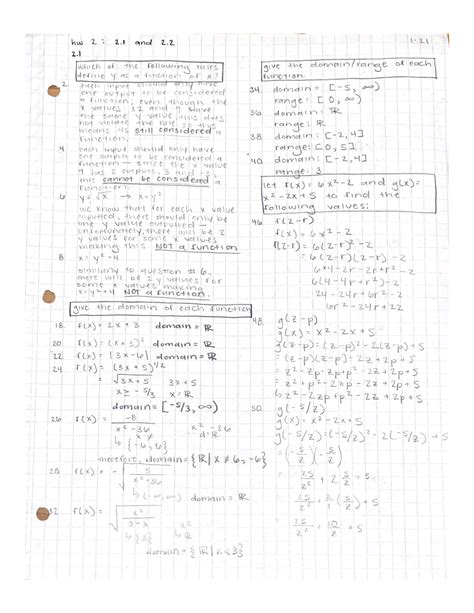 hw 2 : 2.1 and 2.2
1-21
2.1
which of the following rules
define y as a function of x?
2. each input should only have
one output to be considered
a function; even though the
x values 32 and 9 have
the same y value, this does
not violate the rule so
means its still considered a
function.
4. each input should only have
one output to be considered a
function — since the x value
9 has 2 outputs, 3 and
this cannot be considered a
function.
6. y = √x → x = y²
we know that for each x value
inputted, there should only be
one y value outputted —
unfortunately, there will be 2
y values for some x values
making this NOT a function
8. x = y² + 4
similarly to question #6,
there will be 2 y values for
some x values making
x = y² + 4 NOT a function.
give the domain of each function
18. f(x) = 2x + 3 domain = ℝ
20. f(x) = (x + 3)² domain = ℝ
22. f(x) = |3x - 6| domain = ℝ
24. f(x) = (3x + 5)^1/2
= √3x + 5 3x + 5
x ≥ -5/3 x = ℝ
domain = [-5/3, ∞)
26. f(x) = -8
x² - 36 x² - 36
x ≠
{-6, 6}
therefore, domain = {ℝ | x ≠ 6, -6}
28. f(x) = - √5
x² + 36
↳ (-∞, ∞) domain = ℝ
32. f(x) = √x²
3 - x
↳ {3}
domain = {ℝ | x < 3}
give the domain/range of each
function.
34. domain = [-5, ∞)
range: [0, ∞)
36. domain: ℝ
range: ℝ
38. domain: [-2, 4]
range: [0, 5]
40. domain: [-2, 4]
range: 3
let f(x) = 6x² - 2 and g(x) =
x² - 2x + 5 to find the
following values:
46. f(2-r)
f(x) = 6x² - 2
f(2-r) = 6(2-r)² - 2
= 6(2-r)(2-r) - 2
6*4-2r-2r+r²-2
6(4-4r+r²)-2
24-24r+6r²-2
6r²-24r+22
48. g(z-p)
g(x) = x² - 2x + 5
g(z-p) = (z-p)² - 2(z-p) + 5
= (z-p)(z-p) - 2z + 2p + 5
= z² - zp - zp + p² - 2z + 2p + 5
= z² + p² - 2zp - 2z + 2p + 5
↳ z² - 2zp + p² - 2z + 2p + 5
50. g(-5/z)
g(x) = x² - 2x + 5
g(-5/z) = (-5/z)² - 2(-5/z) + 5
= (-5/z)(-5/z)
= 25/z² + 2 5/z + 5
= 25/z² + 2/1 (5/z) + 5
= 25/z² + 10/z + 5